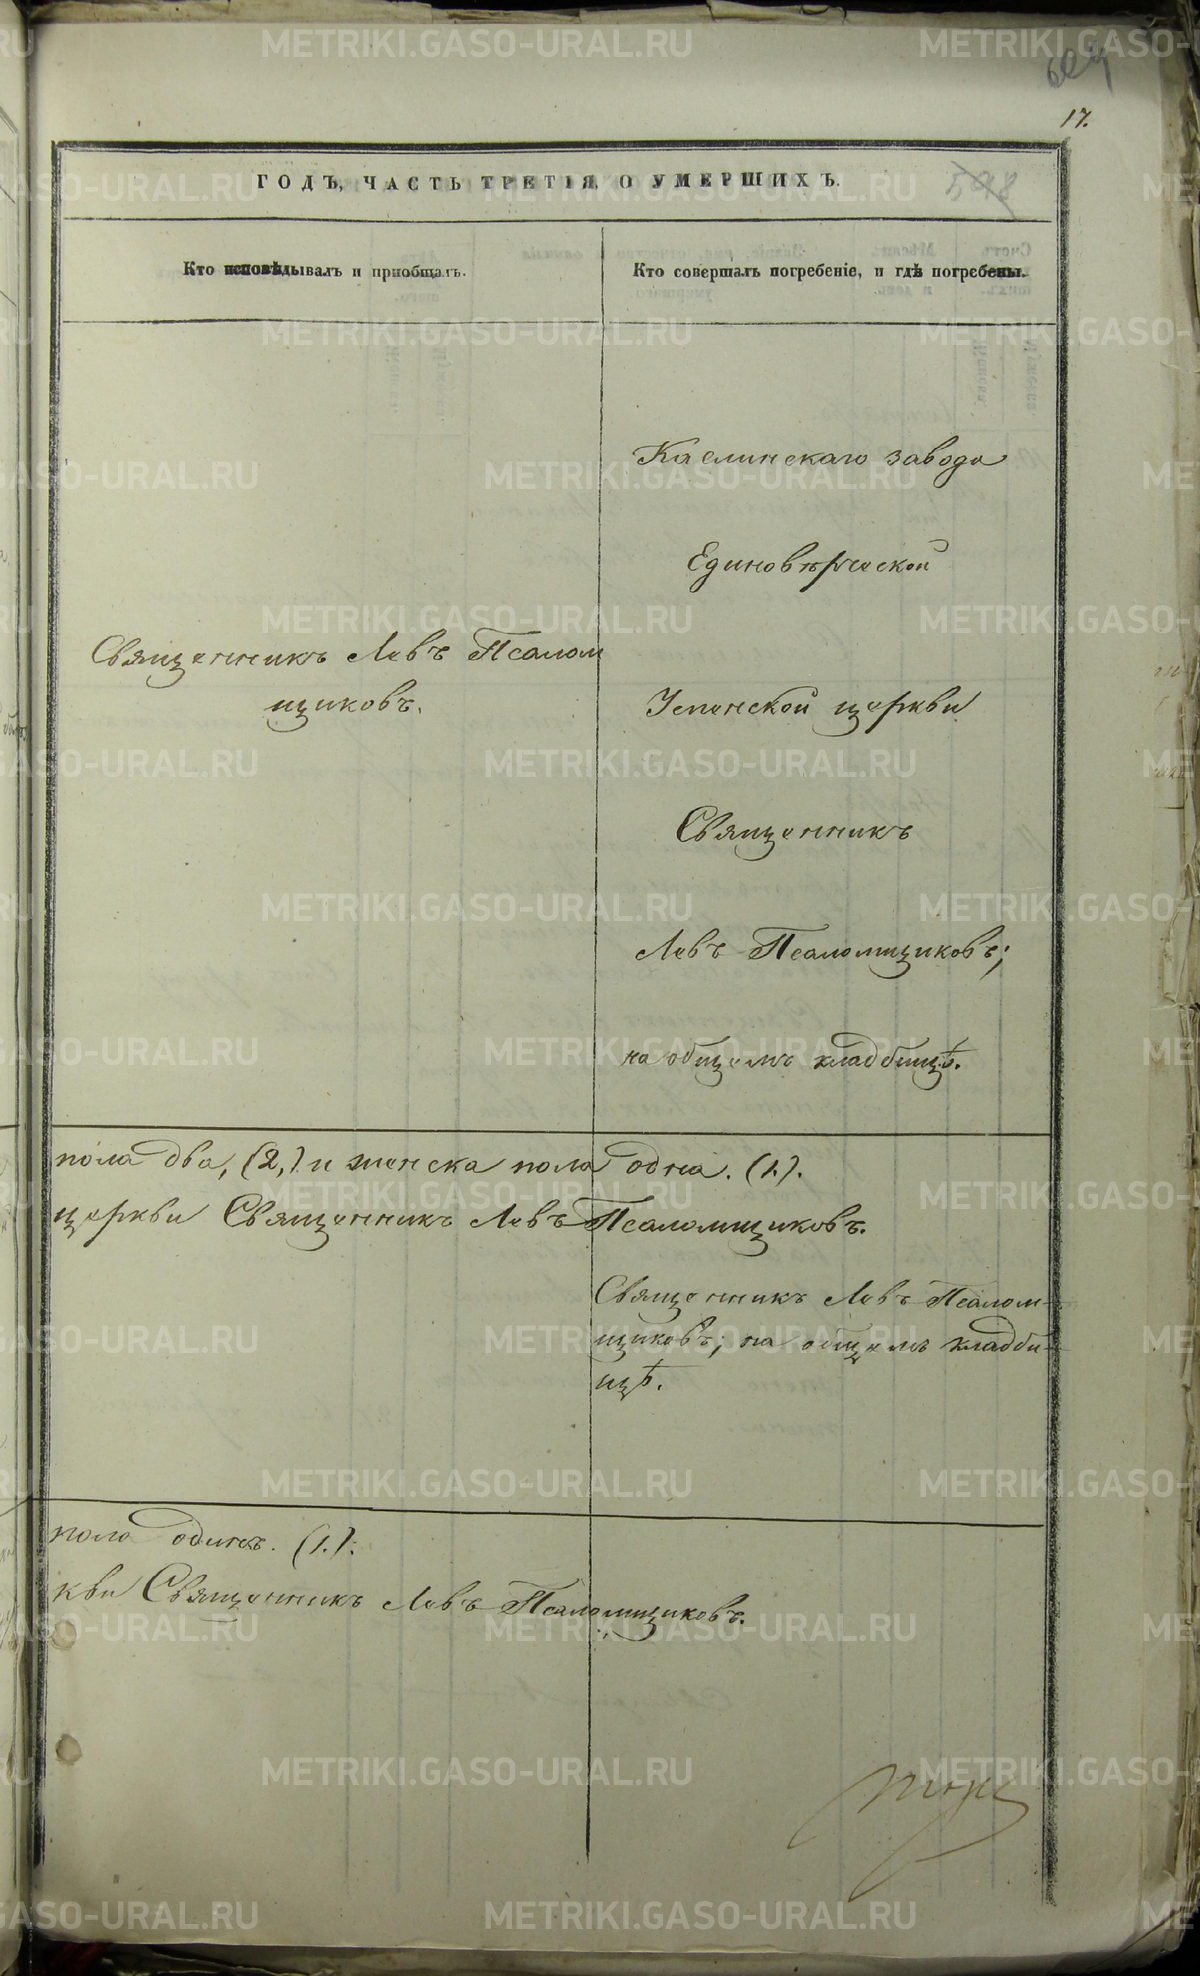 17.
ГОДЪ, ЧАСТЬ ТРЕТІЯ, О УМЕРШИХЪ.
598
Кто исповѣдывалъ и приобщалъ.
Кто совершалъ погребеніе, и гдѣ погребены.
Каслинскаго завода
Единовѣрческой
Священникъ Левъ Псалом
щиковъ.
Успенской церкви
Священникъ
Левъ Псаломщиковъ;
на общемъ кладбищѣ.
пола два, (2,) и женска пола одна. (1.).
церкви Священникъ Левъ Псаломщиковъ.
Священникъ Левъ Псалом-
щиковъ; на общемъ кладби-
щѣ.
пола одинъ. (1.).
кви Священникъ Левъ Псаломщиковъ.
METRIKI.GASO-URAL.RU